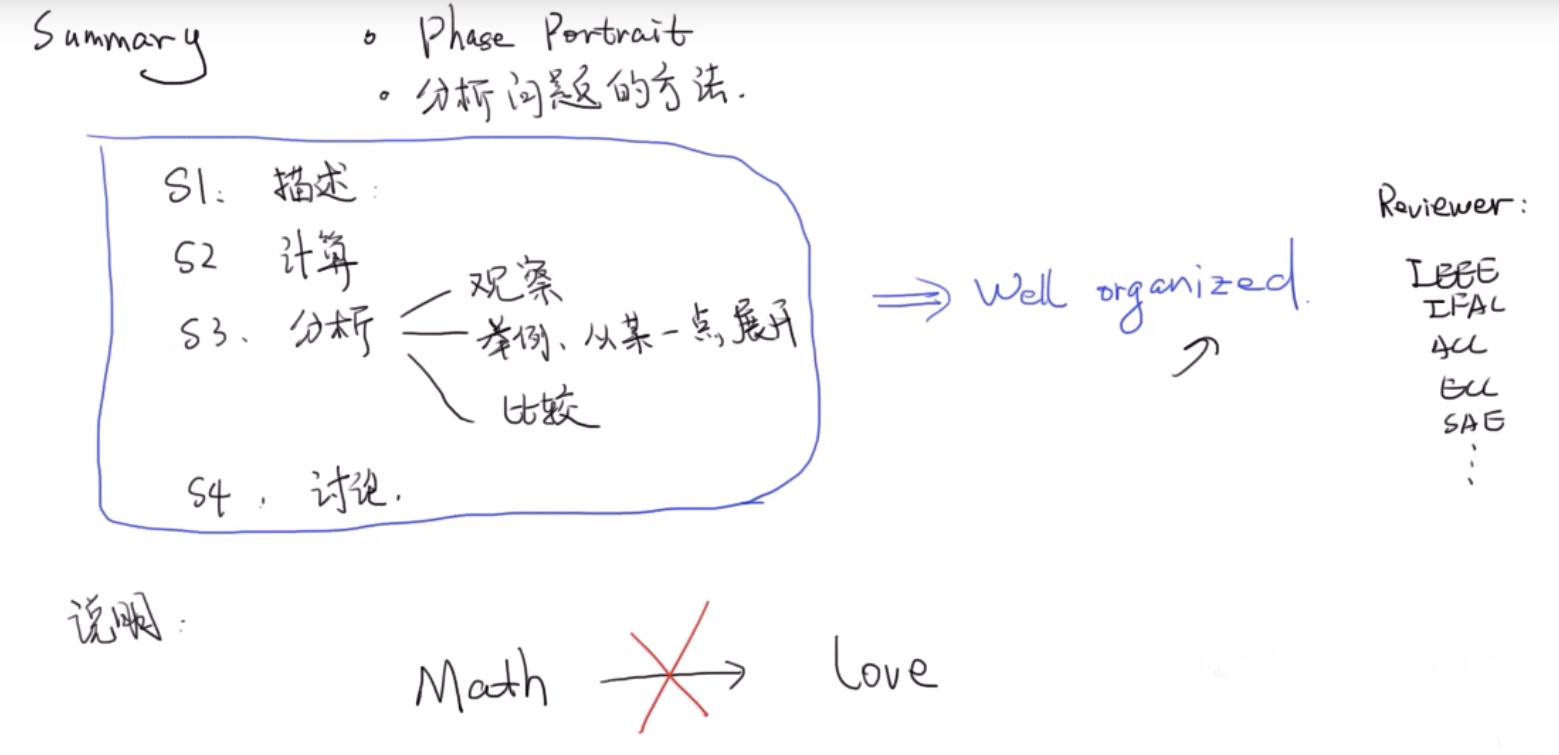 Summary
• Phase Portrait
• 分析问题的方法.
S1. 描述:
S2 计算
S3、分析
观察
举例、从某一点展开
比较
S4. 讨论.
⇒ Well organized.
Reviewer:
IEEE
IFAC
ACC
ECC
SAE
说明:
Math → Love